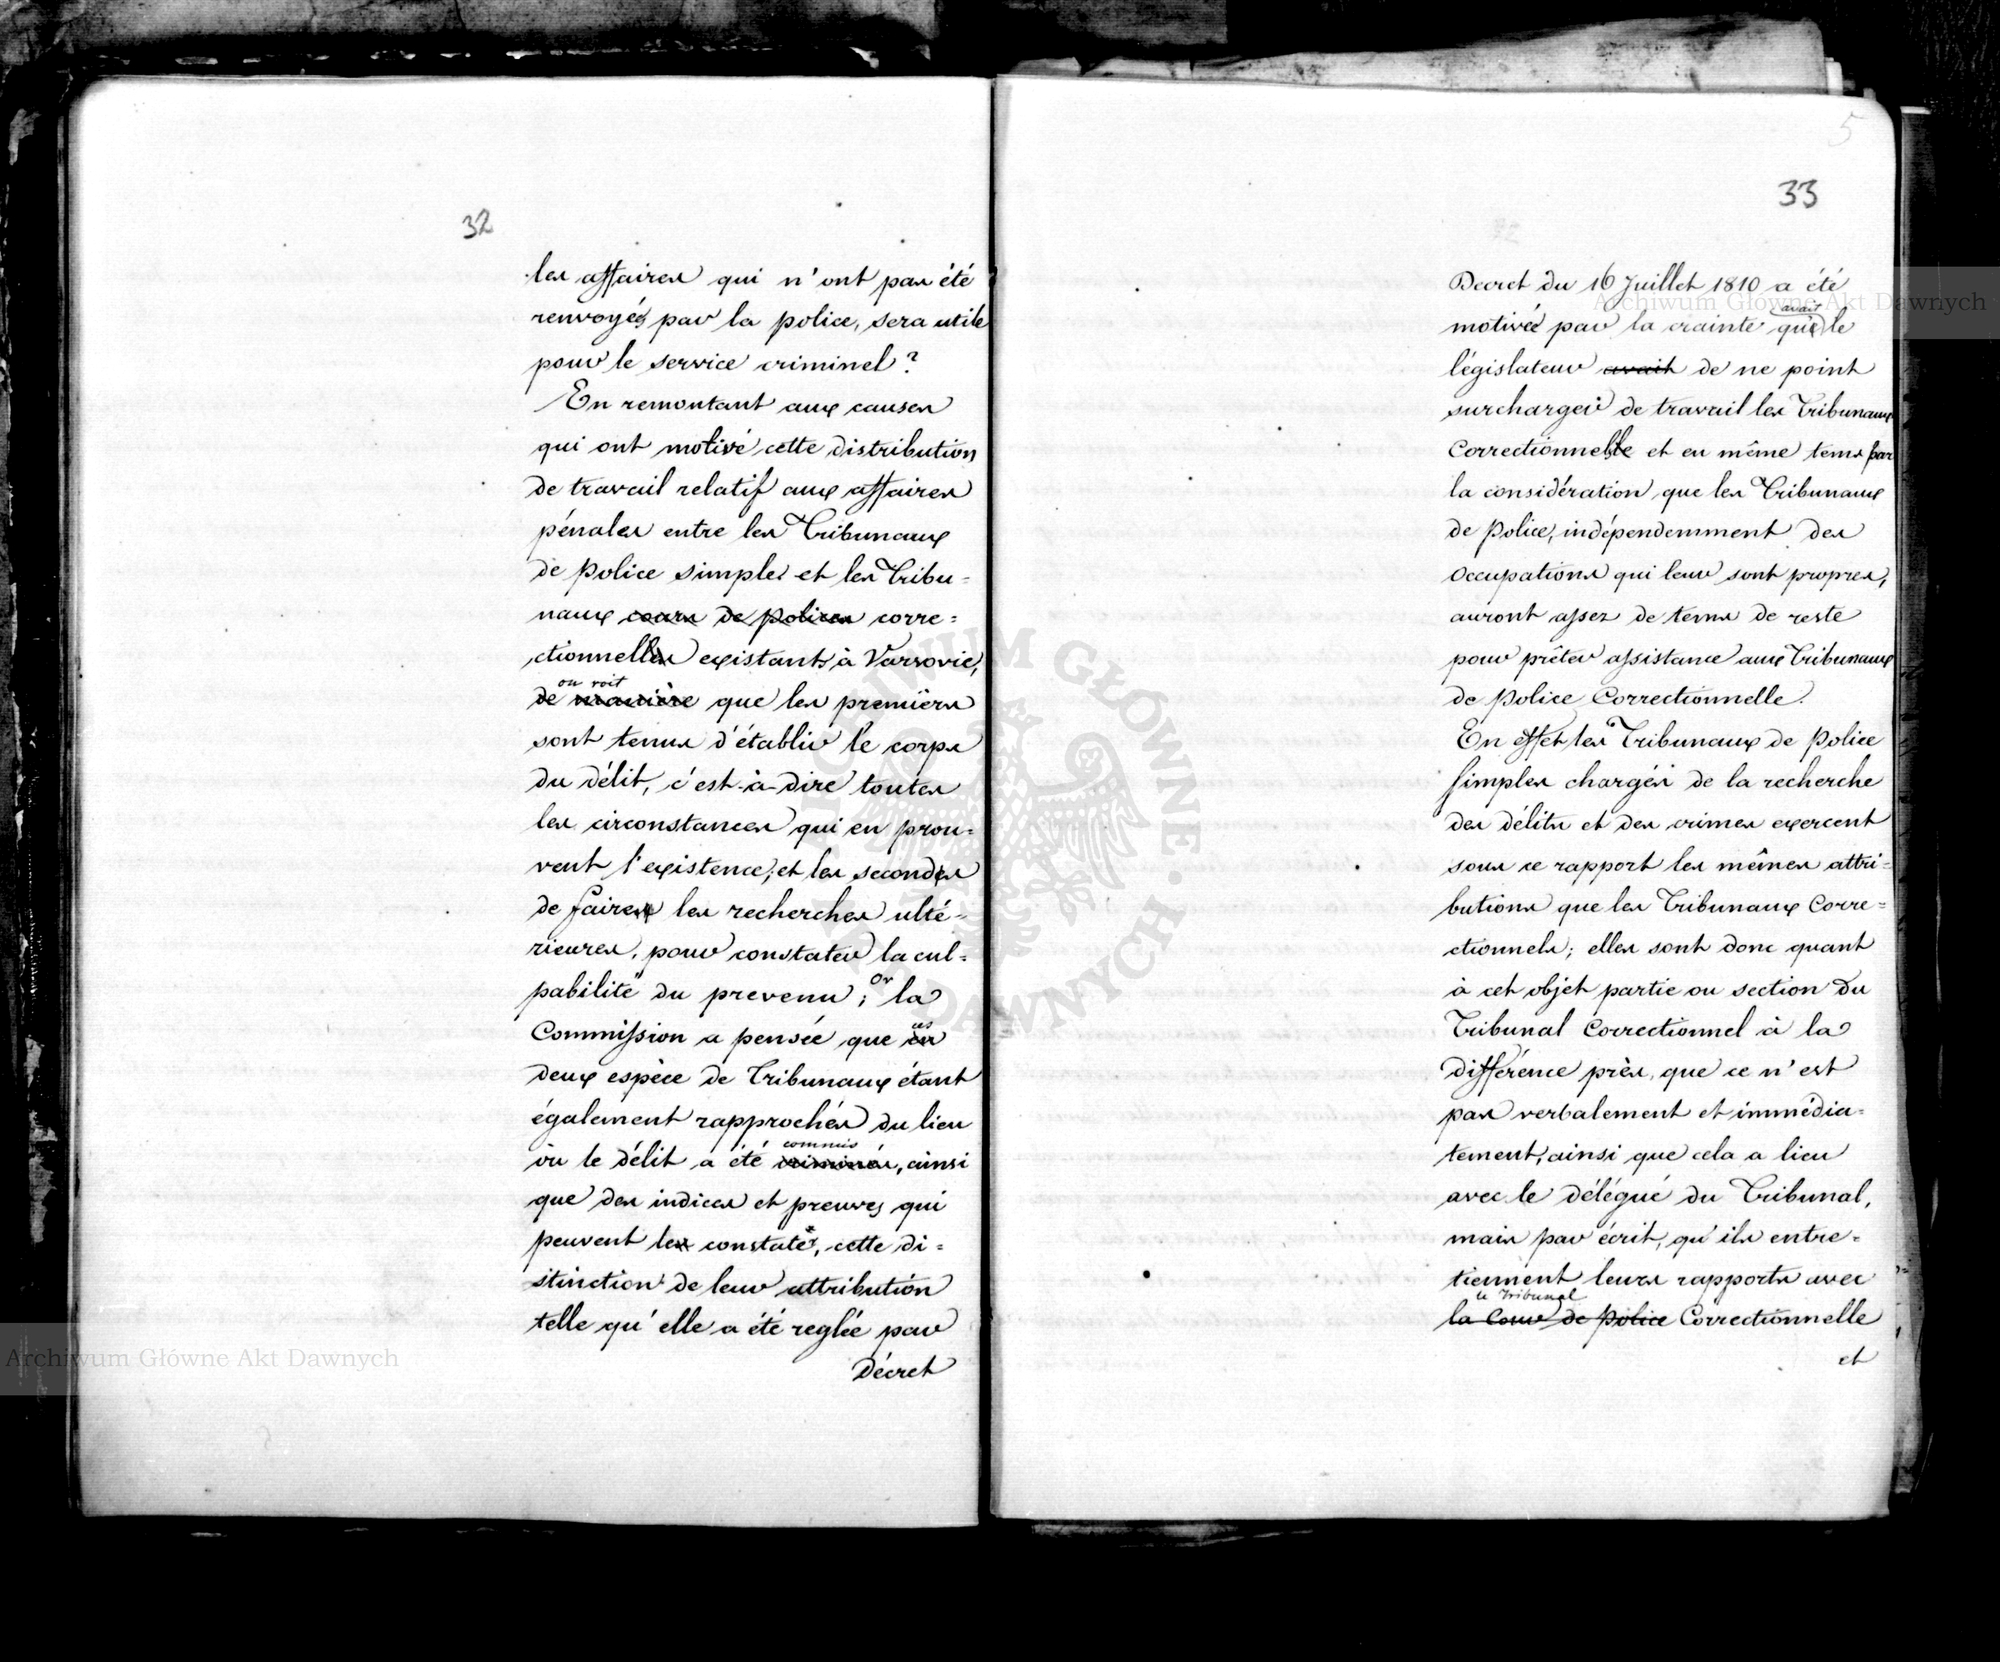 32
les affaires qui n'ont pas été
renvoyés par la police, sera utile
pour le service criminel?
En remontant aux causes
qui ont motivé cette distribution
de travail relatif aux affaires
pénales entre les Tribunaux
de police simples et les Tribu=
naux cours de polices corre=
ctionnelles existants à Varsovie,
on voit
de manière que les premièrs
sont tenus d'établir le corps
du délit, c'est-à-dire toutes
les circonstances qui en prou=
vent l'existence, et les secondes
de faire les recherches ulté=
rieures, pour constater la cul=
pabilité du prevenu; Or la
Commission a pensée que ces
deux espèce de Tribunaux étant
également rapprochés du lieu
commis
òu le délit a été criminés, ainsi
que des indices et preuves qui
peuvent les constater, cette di=
stinction de leur attribution
telle qu'elle a été reglée par
Décret
5
33
Decret du 16 Juillet 1810 a été
avait
motivée par la crainte que le
législateur avait de ne point
surcharger de travail les Tribunaux
Correctionnelle et en même tems par
la considération que les Tribunaux
de Police, indépendemment des
occupations qui leur sont propres,
auront assez de tems de reste
pour prêter assistance aux Tribunaux
de Police Correctionnelle.
En effet les Tribunaux de Police
simples chargés de la recherche
des délits et des crimes exercent
sous ce rapport les mêmes attri=
butions que les Tribunaux Corre=
ctionnels; elles sont donc quant
à cet objet partie ou section du
Tribunal Correctionnel à la
différence près, que ce n'est
pas verbalement et immédia=
tement, ainsi que cela a lieu
avec le délégué du Tribunal,
mais par écrit, qu'ils entre=
tiennent leurs rapports avec
le Tribunal
la Cour de Police Correctionnelle
et
Archiwum Główne Akt Dawnych
Archiwum Główne Akt Dawnych
ARCHIWUM GŁÓWNE AKT DAWNYCH